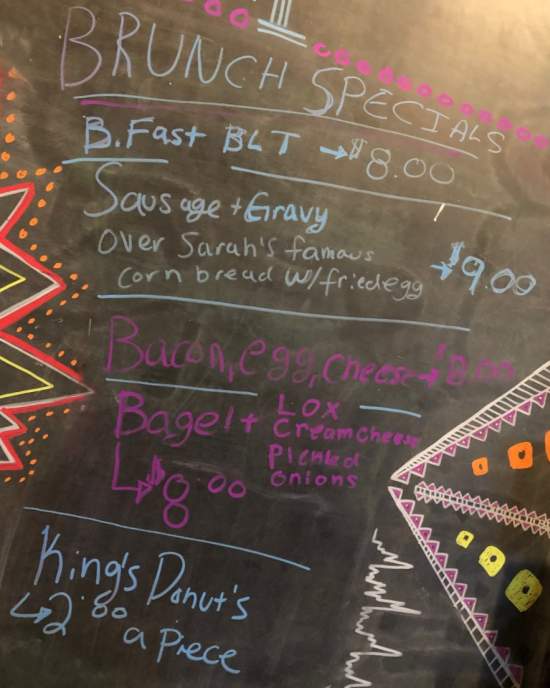 BRUNCH SPECIALS
B.Fast BLT → $8.00
Sausage + Gravy
Over Sarah's famous
corn bread w/friedegg → $9.00
Bacon, egg, cheese → $8.00
Bagel + LOX
Creamcheese
Pickled
Onions
→ $8.00
King's Donut's
→ 2.80
a Piece